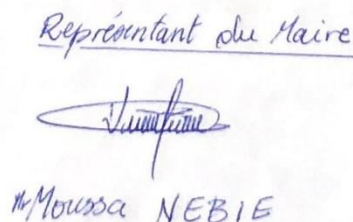 Représentant du Maire
Mr Moussa NEBIE